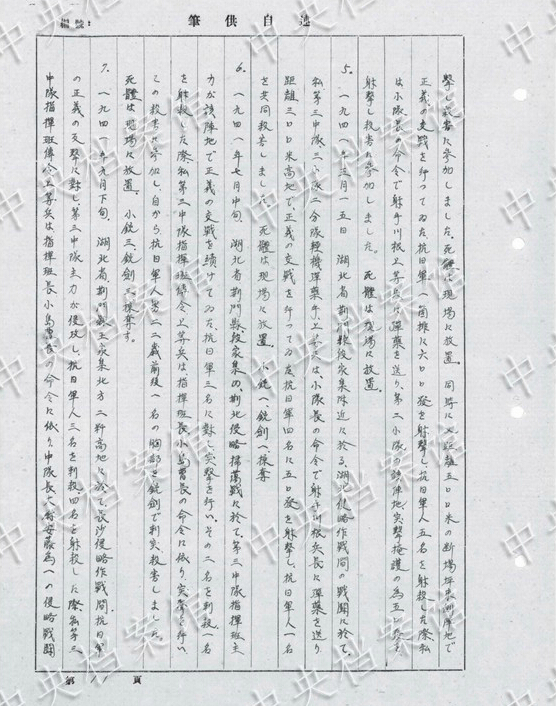 筆供自述
編號：
撃し殺害に参加しました。死體は現場に放置。同時に又距離五〇〇米の
正義の交戦を行つてゐた抗日軍へ向け六〇發を射撃し、抗日軍人五名を射殺した際私
は小隊長の命令で射手川板上等兵に彈藥を送り、第二小隊の敵陣地突撃掩護の為
射撃し殺害に参加しました。死體は現場に放置。
5. 一九四一年三月一五日 湖北省荊門縣段家集附近に於る、湖北侵略作戦間の戦闘に於て、
私第三中隊二小隊二分隊輕機彈藥手上等兵は、小隊長の命令で射手川板兵長に彈藥を送り
距離三〇〇米高地で、正義の交戦を行つてゐた抗日軍四名に五〇發を射撃し、抗日軍人一名
を共同殺害しました。死體は現場に放置。小銃一銃剣一捺奪
6. 一九四一年七月中旬、湖北省荊門縣段家集の、荊北侵略掃蕩戦に於て、第三中隊指揮班主
力が該陣地で正義の交戦を續けてゐた抗日軍三名に對し突撃を行い、その二名を刺殺一名
を射殺した際私第三中隊指揮班傳令上等兵は指揮班長小島曹長の命令に依り、突撃を行い
この殺害に参加し、自から抗日軍人男二二歳前後一名の胸部を銃剣で刺突殺害しました。
死體は現場に放置。小銃三銃剣三捺奪す。
7. 一九四一年九月下旬、湖北省荊門縣王家集北方二粁高地に於て、長沙侵略作戦間、抗日軍
の正義の反撃に對し、第三中隊主力が侵攻し、抗日軍人三名を刺殺四名を射殺した際私第三
中隊指揮班傳令上等兵は指揮班長小島曹長の命令に依り、中隊長への侵略戦闘
第 11 頁
中央档案馆